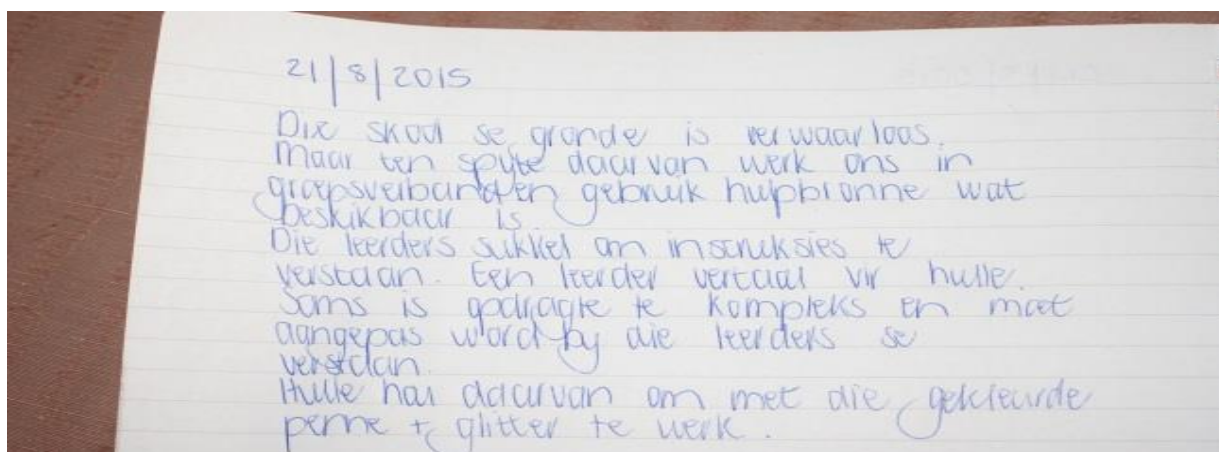 21/8/2015
Die skool se gronde is verwaarloos.
Maar ten spyte daarvan werk ons in
groepsverband en gebruik hulpbronne wat
beskikbaar is.
Die leerders sukkel om instruksies te
verstaan. Een leerder vertaal vir hulle.
Soms is opdragte te kompleks en moet
aangepas word by die leerders se
verstaan.
Hulle hou daarvan om met die gekleurde
penne + glitter te werk.